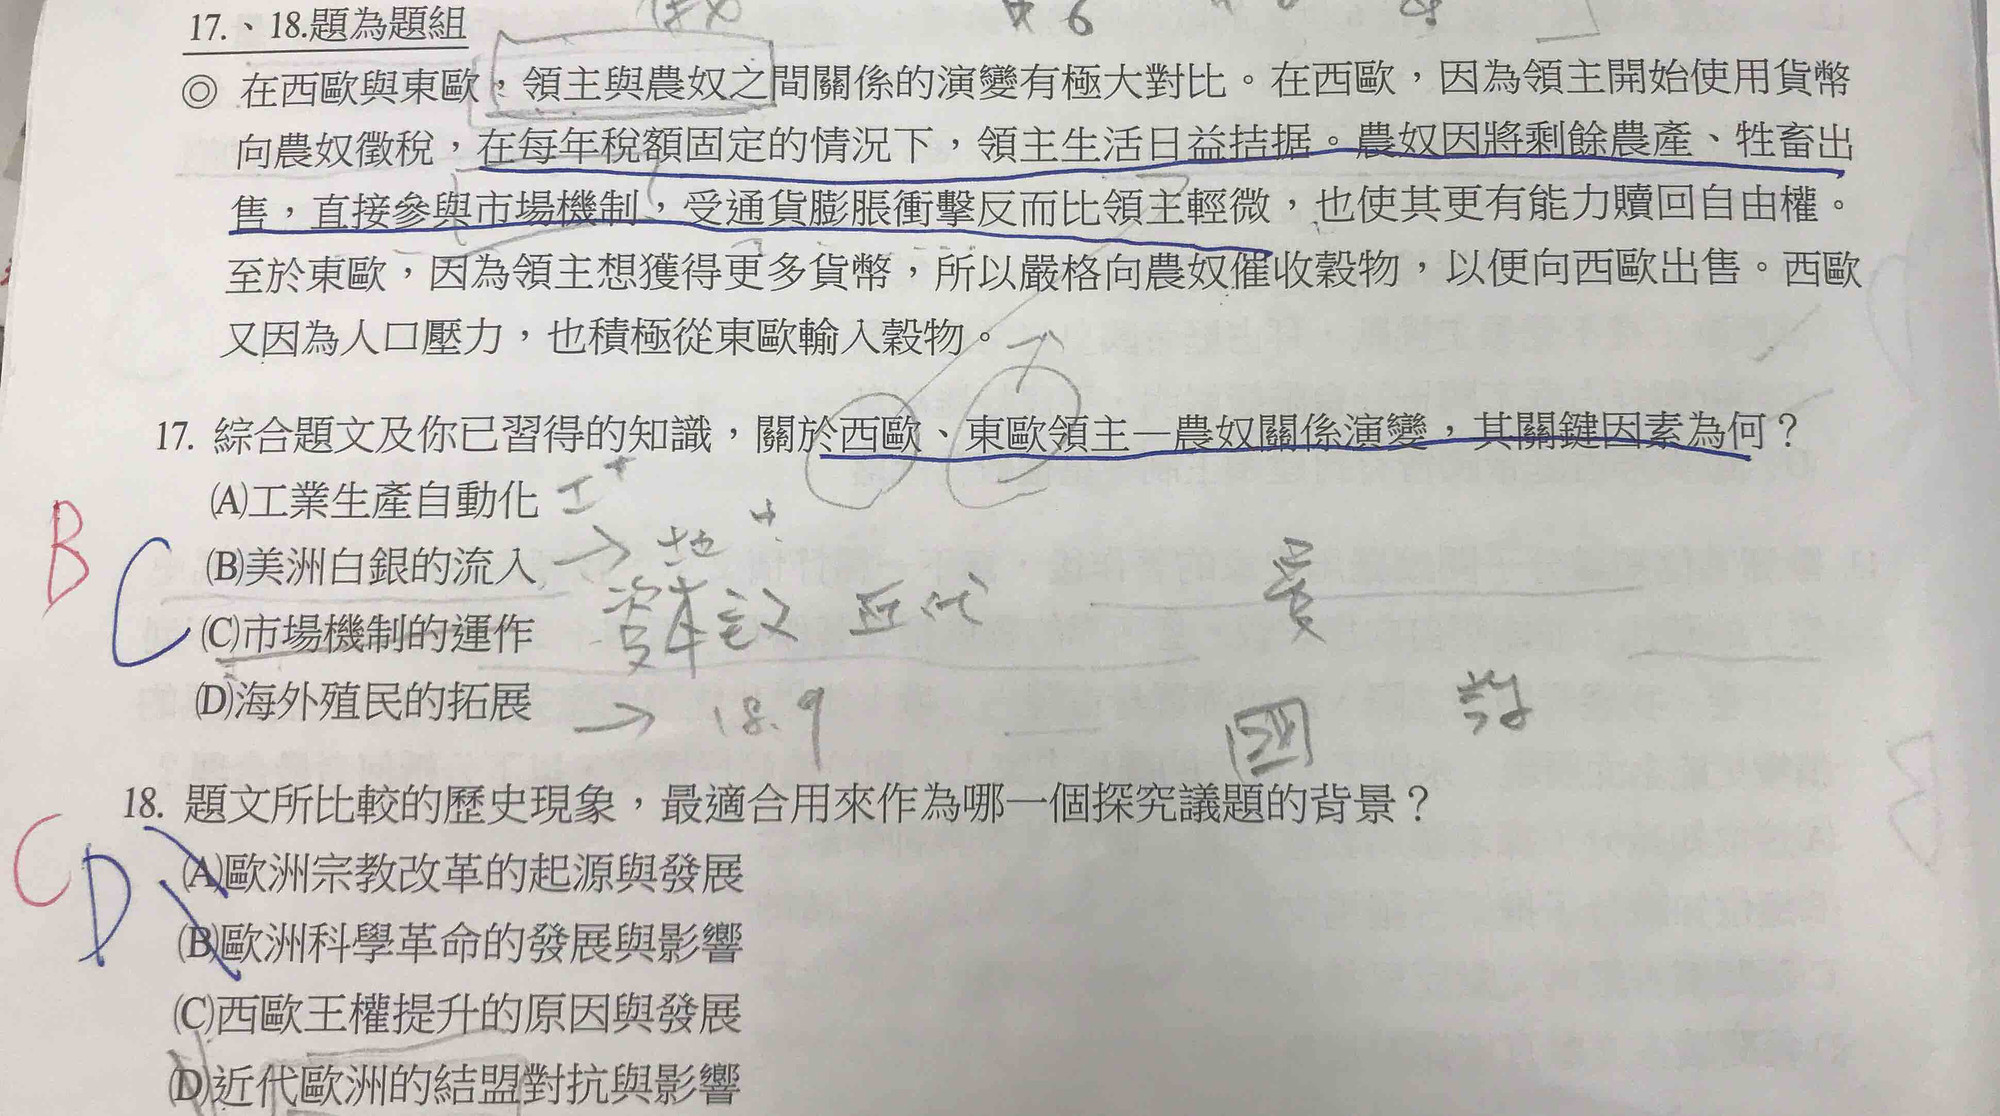 17.、18.題為題組
◎ 在西歐與東歐，領主與農奴之間關係的演變有極大對比。在西歐，因為領主開始使用貨幣
向農奴徵稅，在每年稅額固定的情況下，領主生活日益拮据。農奴因將剩餘農產、牲畜出
售，直接參與市場機制，受通貨膨脹衝擊反而比領主輕微，也使其更有能力贖回自由權。
至於東歐，因為領主想獲得更多貨幣，所以嚴格向農奴催收穀物，以便向西歐出售。西歐
又因為人口壓力，也積極從東歐輸入穀物。
17. 綜合題文及你已習得的知識，關於西歐、東歐領主—農奴關係演變，其關鍵因素為何？
(A)工業生產自動化 工+
B (B)美洲白銀的流入 → 地+
C (C)市場機制的運作 資本主义 近代
(D)海外殖民的拓展 → 18.9
國
18. 題文所比較的歷史現象，最適合用來作為哪一個探究議題的背景？
C D (A)歐洲宗教改革的起源與發展
(B)歐洲科學革命的發展與影響
(C)西歐王權提升的原因與發展
(D)近代歐洲的結盟對抗與影響